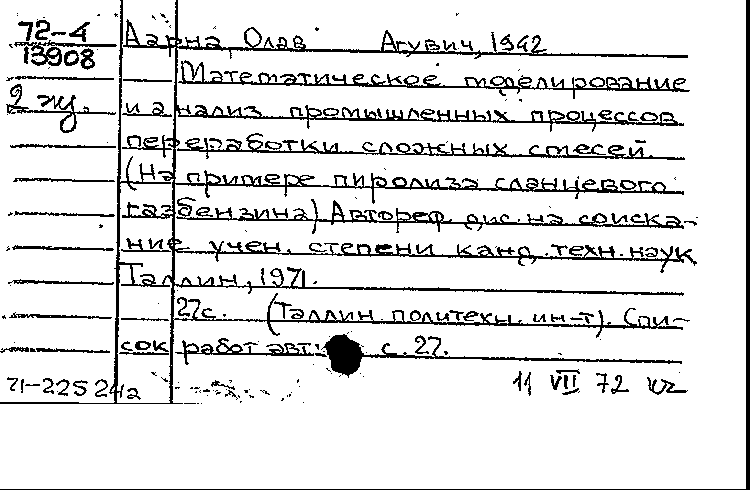 72-4
13908
2 эк.
Аарна, Олав Агувич, 1942
Математическое моделирование
и анализ промышленных процессов
переработки сложных смесей.
(На примере пиролиза сланцевого
газбензина) Автореф. дис. на соиска-
ние учен. степени канд. техн. наук
Таллин, 1971.
27с. (Таллин. политехн. ин-т). Спи-
сок работ авт.: с. 27.
71-22524a
11 VII 72